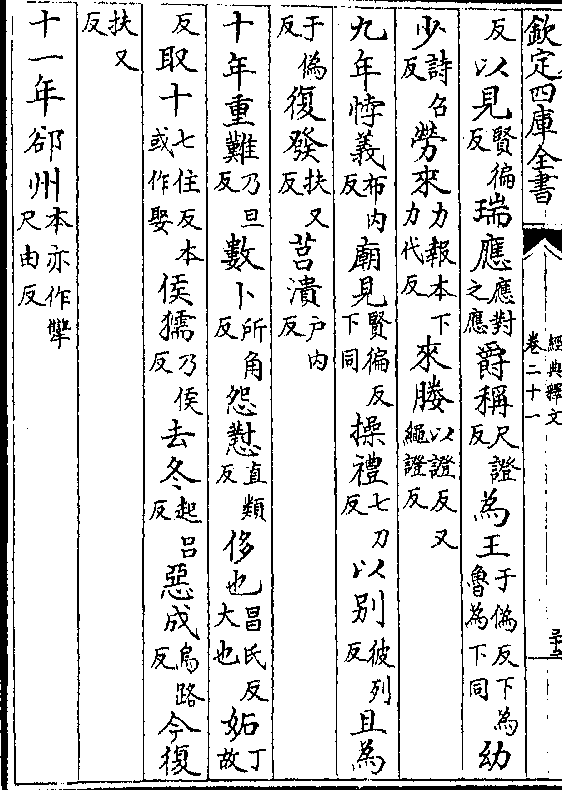 欽定四庫全書
經典釋文
卷二十一
反以見賢徧反瑞應應對之應爵稱尺證反為王于偽反下為魯為下同幼
少詩召反勞來力報本下力代反來媵以證反又繩證反
九年悖義布内反廟見賢徧反下同操禮七刀反以別彼列反且為
于偽反復發扶又反莒潰户内反
十年重難乃旦反數卜所角反怨懟直類反侈也昌氏反大也妬丁故
反取十七住反本或作娶侯獳乃侯反去冬起吕反惡成烏路反今復
扶又反
十一年郤州本亦作犨尺由反